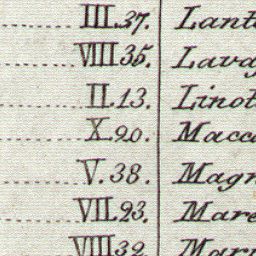 III.37. Lant
VIII.35. Lava
II.13. Linot
X.20. Macca
V.38. Magn
VII.23. Mare
VIII.32. Marr